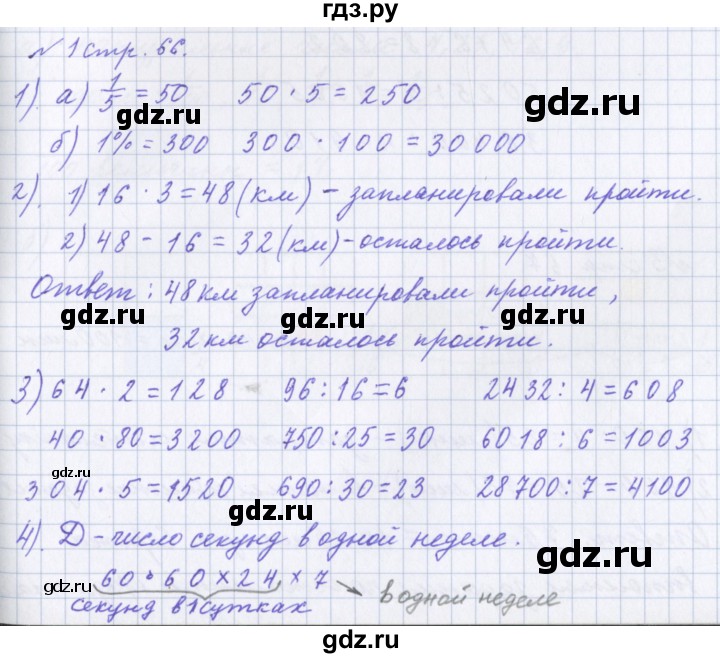 гдз.ру
№ 1 стр. 66.
1). а) 1/5 = 50 50 · 5 = 250
gdz.ru gdz.ru
б) 1% = 300 300 · 100 = 30 000
2). 1) 16 · 3 = 48 (км) – запланировали пройти.
gdz.ru gdz.ru
2) 48 – 16 = 32 (км) – осталось пройти.
Ответ : 48 км запланировали пройти,
gdz.ru gdz.ru gdz.ru
32 км осталось пройти.
3) 64 · 2 = 128 96 : 16 = 6 2432 : 4 = 608
gdz.ru gdz.ru
40 · 80 = 3200 750 : 25 = 30 6018 : 6 = 1003
gdz.ru
304 · 5 = 1520 690 : 30 = 23 28 700 : 7 = 4100
gdz.ru
4). Д – число секунд в одной неделе.
gdz.ru
60 · 60 × 24 × 7 в одной неделе
gdz.ru gdz.ru
секунд в 1 сутках
gdz.ru
gdz.ru